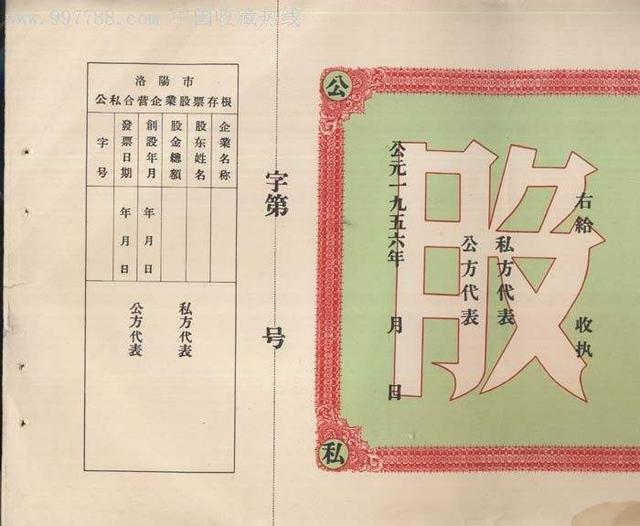 www.997788.com 中国收藏热线
洛陽市
公私合营企業股票存根
企業名称
股东姓名
股金總額
創設年月
年月日
發票日期
年月日
字号
私方代表
公方代表
字第 号
公
私
股
右給 收执
私方代表
公方代表
公元一九五六年 月 日